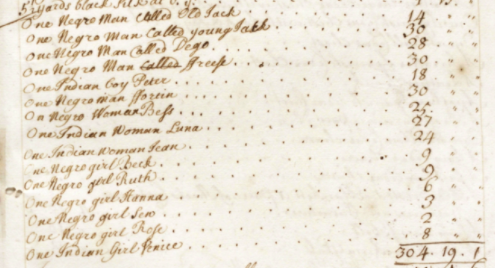 5½ yards black Silk at
One Negro Man Called Old Jack 14
One Negro Man Called young Jakk 30
One Negro Man Called Dego 28
One Negro Man Called ffreese 30
One Indian boy Peter 18
One Negroman ffortin 30
On Negro Woman Bess 25
One Indian Woman Luna 27
One Indian woman Jean 24
one Negro girl Beck 9
One Negro girl Ruth 9
One Negro girl Hanna 6
One Negro girl 3
One Negro girl Rose 2
One Indian Girl 8
304. 19. 1